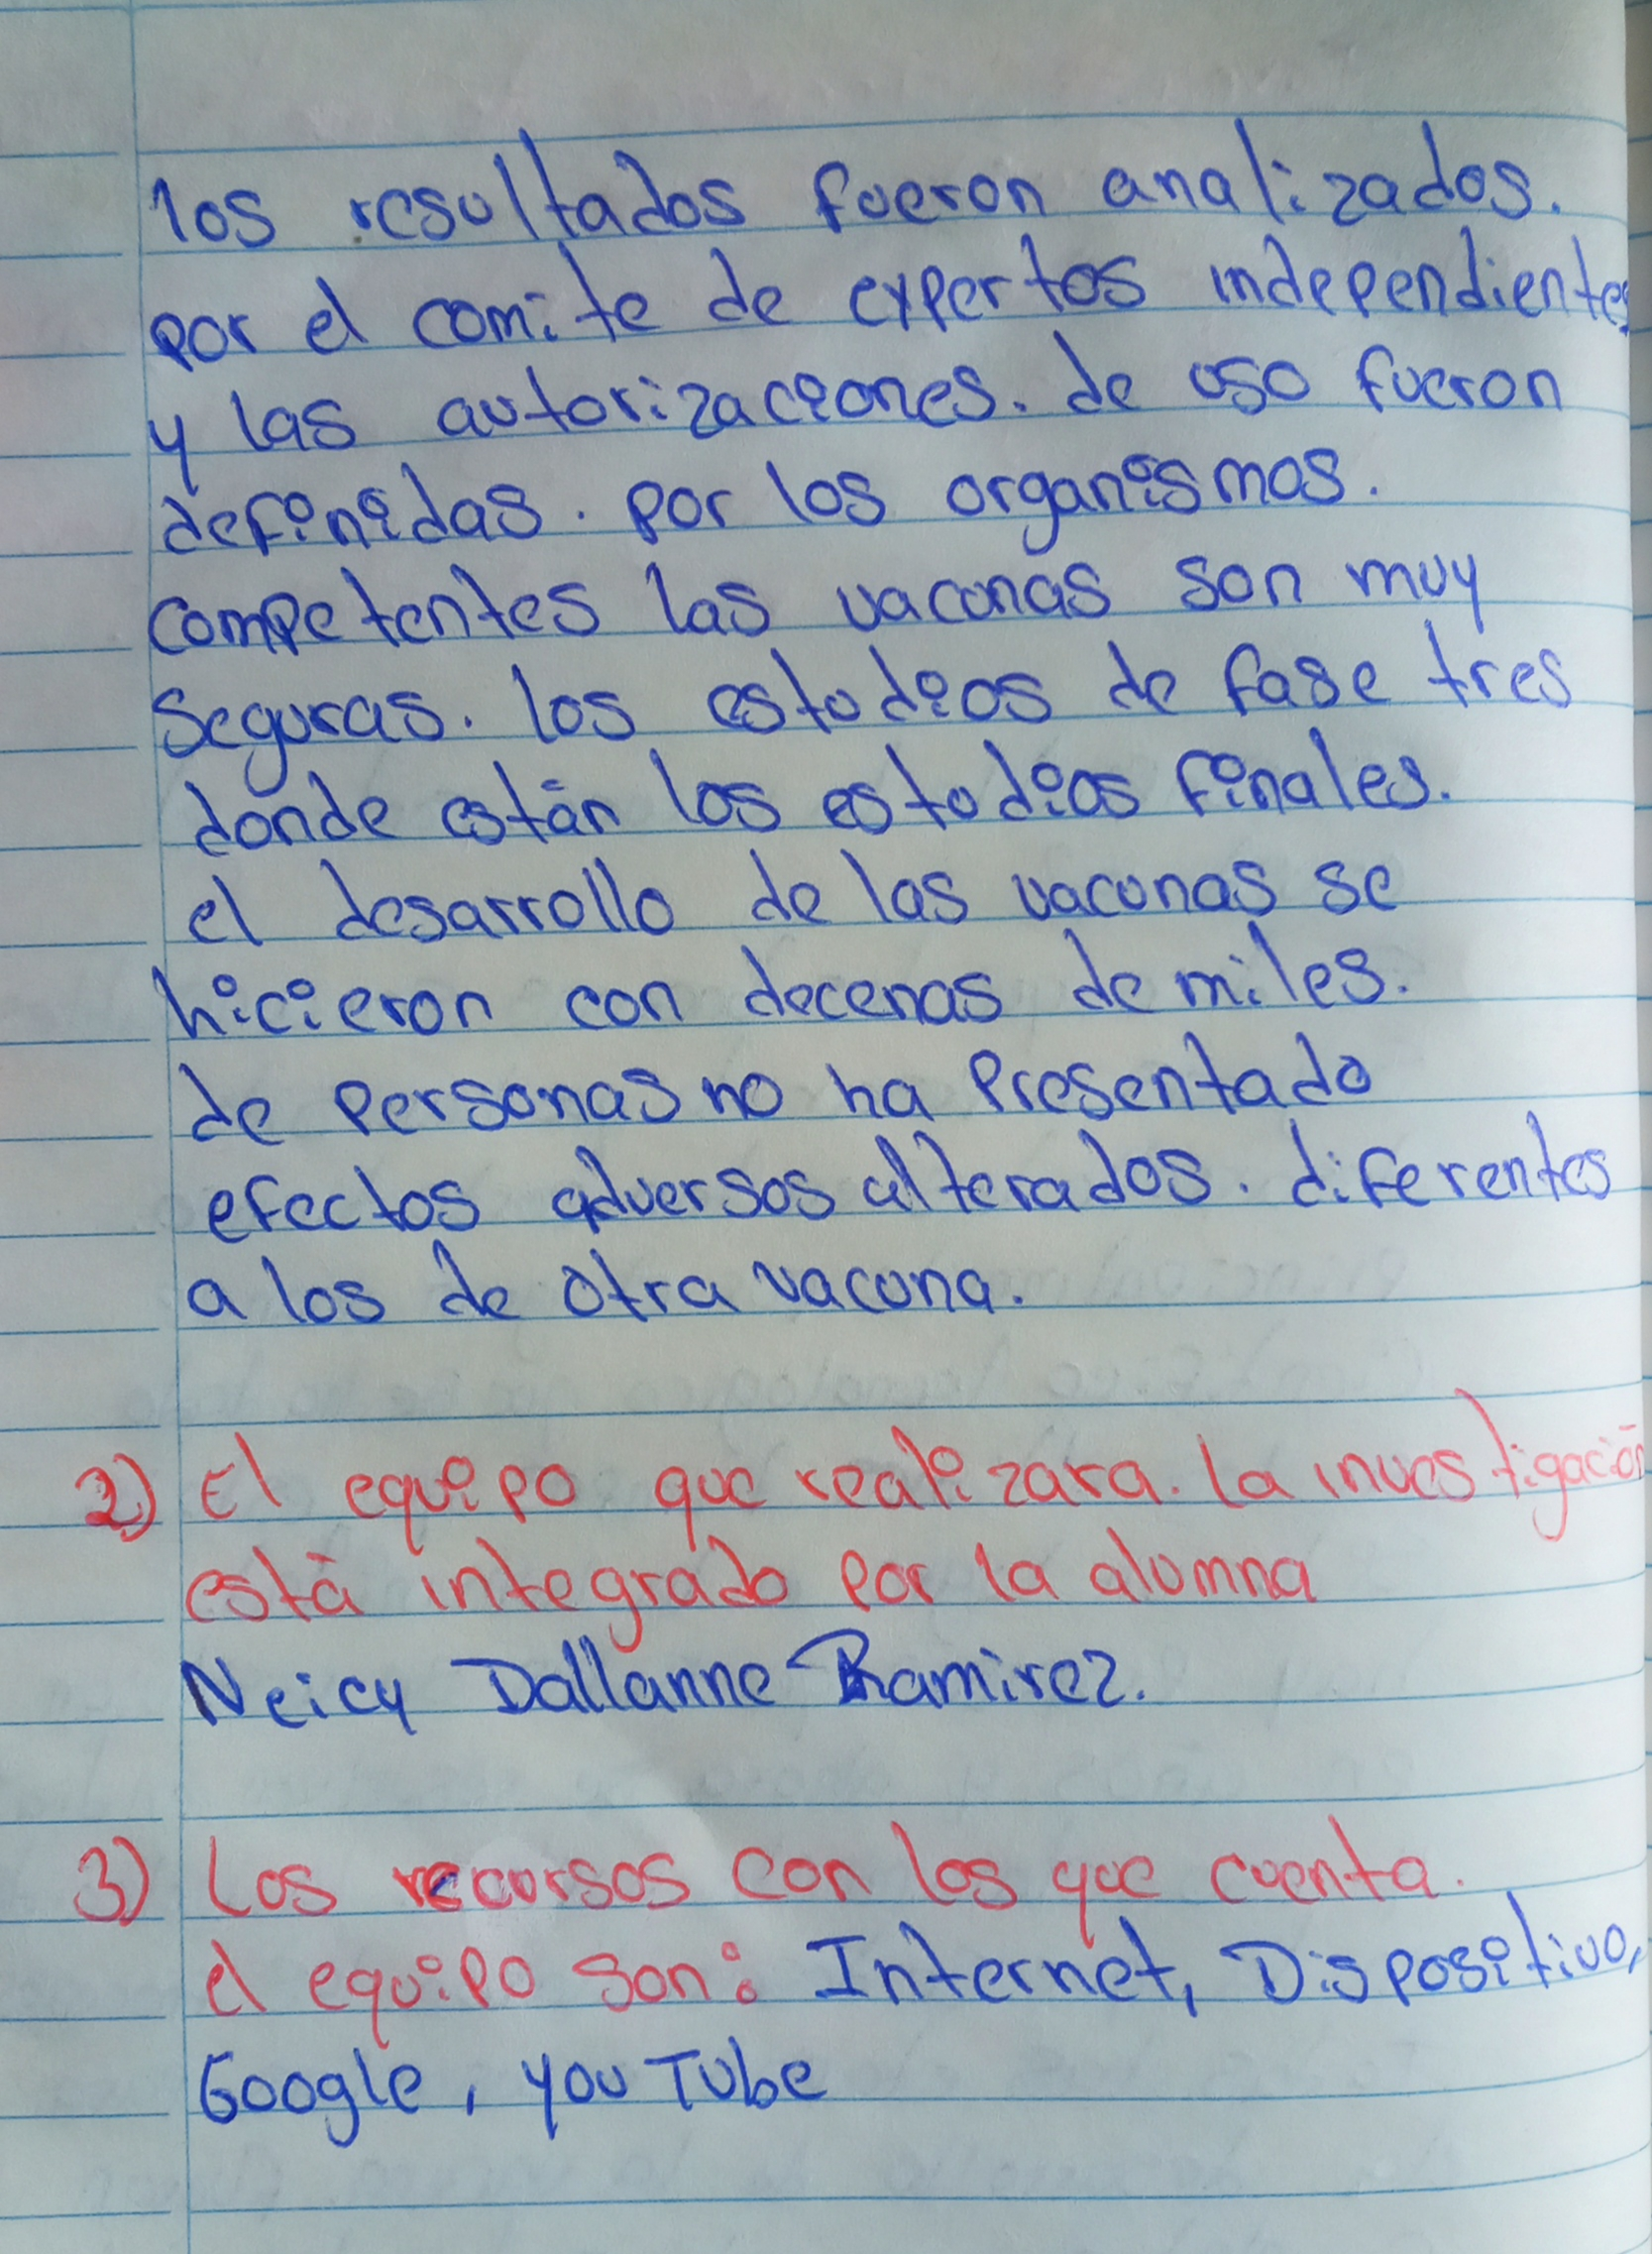 los resultados fueron analizados.
por el comite de expertos independientes
y las autorizaciones. de uso fueron
definidas. por los organismos.
competentes las vacunas son muy
seguras. los estudios de fase tres
donde están los estudios finales.
el desarrollo de las vacunas se
hicieron con decenas de miles.
de personas no ha presentado
efectos adversos alterados. diferentes
a los de otra vacuna.
2) El equipo que realizara. la investigación
está integrado por la alumna
Neicy Dallanne Ramirez.
3) Los recursos con los que cuenta.
el equipo son: Internet, Dispositivo,
Google, you Tube